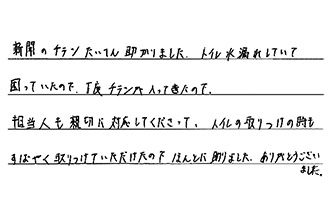 新聞のチラシたいへん助かりました。トイレ水漏れしていて
困っていたので、丁度チラシが入ってきたので、
担当人も親切に対応してくださって、トイレの取りつけの時も
すばやく取りつけていただけたのでほんとに助りました。ありがとうござい
ました。